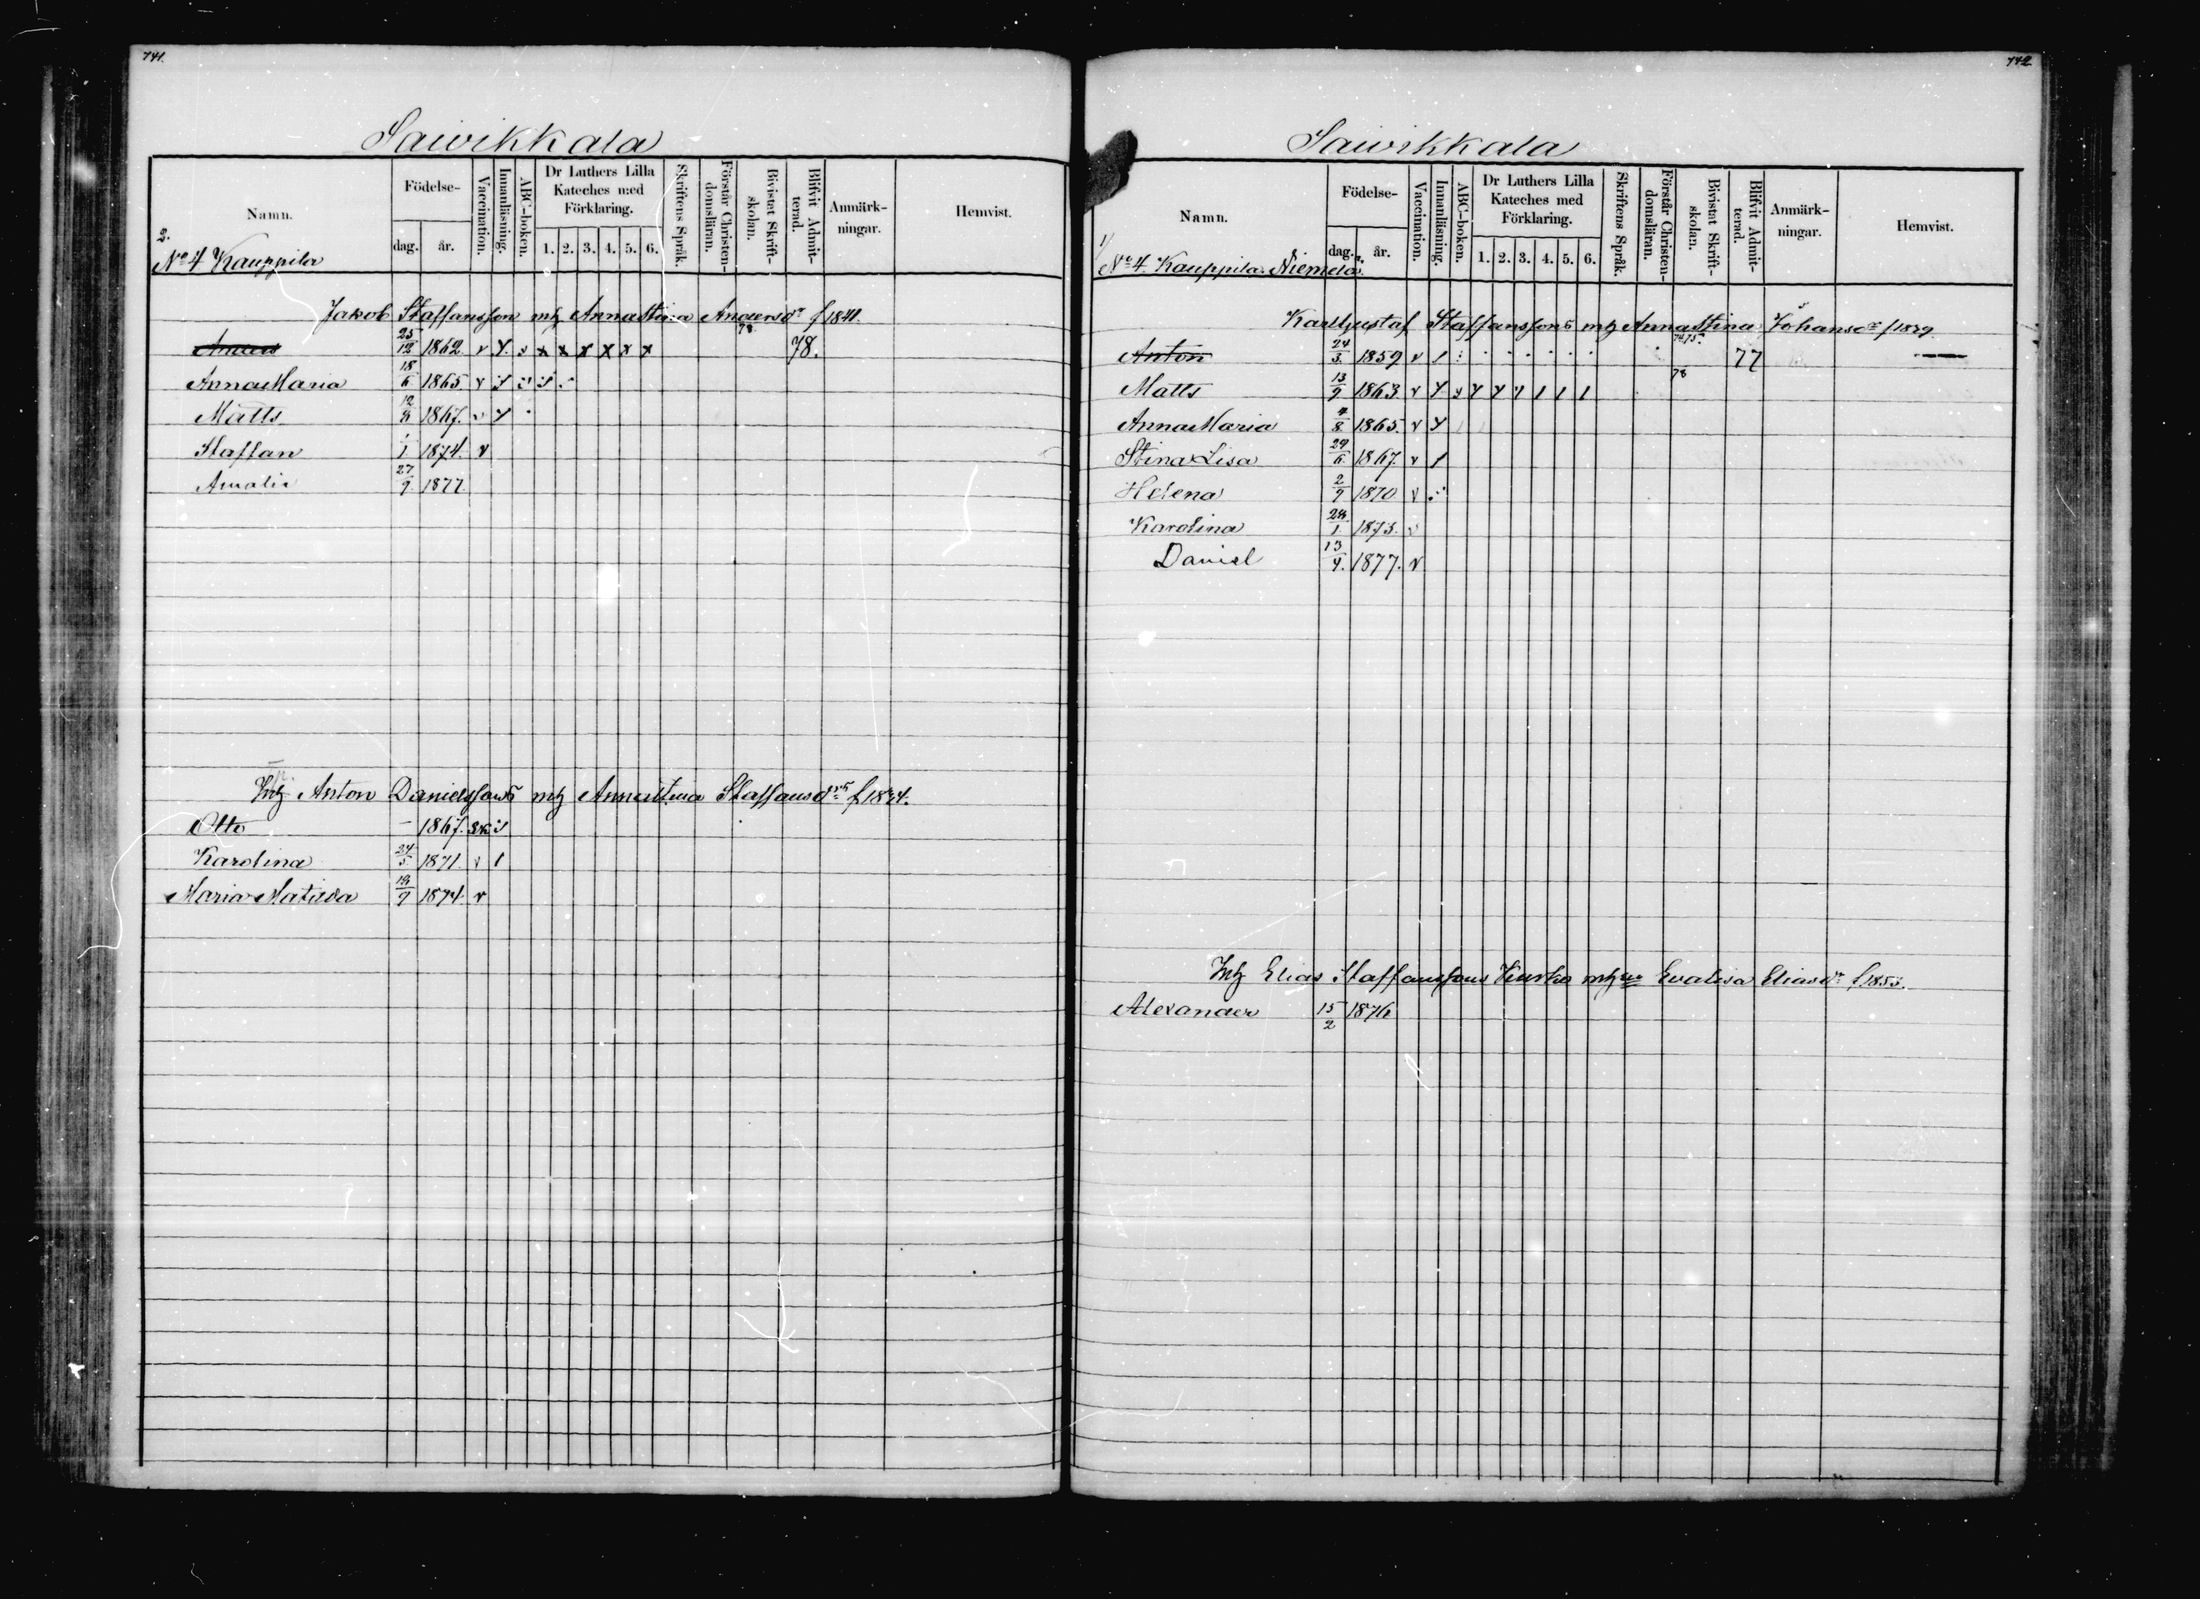 741.
Saivikkala
Namn.
Födelse-
dag.
år.
Vaccination.
Innanläsning.
ABC-boken.
Dr Luthers Lilla
Kateches med
Förklaring.
1. 2. 3. 4. 5. 6.
Skriftens Språk.
Förstår Christen-
domsläran.
Bivistat Skrift-
skolan.
Blifvit Admit-
terad.
Anmärk-
ningar.
Hemvist.
2.
No 4 Kauppila
Jakob Staffansson mh Annastina Andersdr f 1841.
Anders 25/12 1862 v Y v x x x x x x 78 78.
AnnaMaria 18/6 1865 v
Matts 1867. v Y
Staffan 1/1 1874. v
Amalia 27/9. 1877.
Inh Anton Danielssons mh Annastina Staffansdrs
Otto – 1867.
Karolina 24/5. 1871. v 1
Maria Matilda 1874. v
742.
Saivikkala
Namn.
Födelse-
dag.
år.
Vaccination.
Innanläsning.
ABC-boken.
Dr Luthers Lilla
Kateches med
Förklaring.
1. 2. 3. 4. 5. 6.
Skriftens Språk.
Förstår Christen-
domsläran.
Bivistat Skrift-
skolan.
Blifvit Admit-
terad.
Anmärk-
ningar.
Hemvist.
1/
No 4. Kauppila Niemelä.
Karl Gustaf Staffanssons mh Annastina Johansdr f 1839.
Anton 24/3. 1859 v 1 77
Matts 13/9 1863 v Y Y Y 1 1 1 78
AnnaMaria 4/8 1865. v Y
Stina Lisa 29/6. 1867. v 1
Helena 2/9 1870 v
Karolina 28/1. 1873. v
Daniel 13/4. 1877. v
Inh Elias Staffanssons Kurko Evalisa Eliasdr
Alexander 15/2 1876